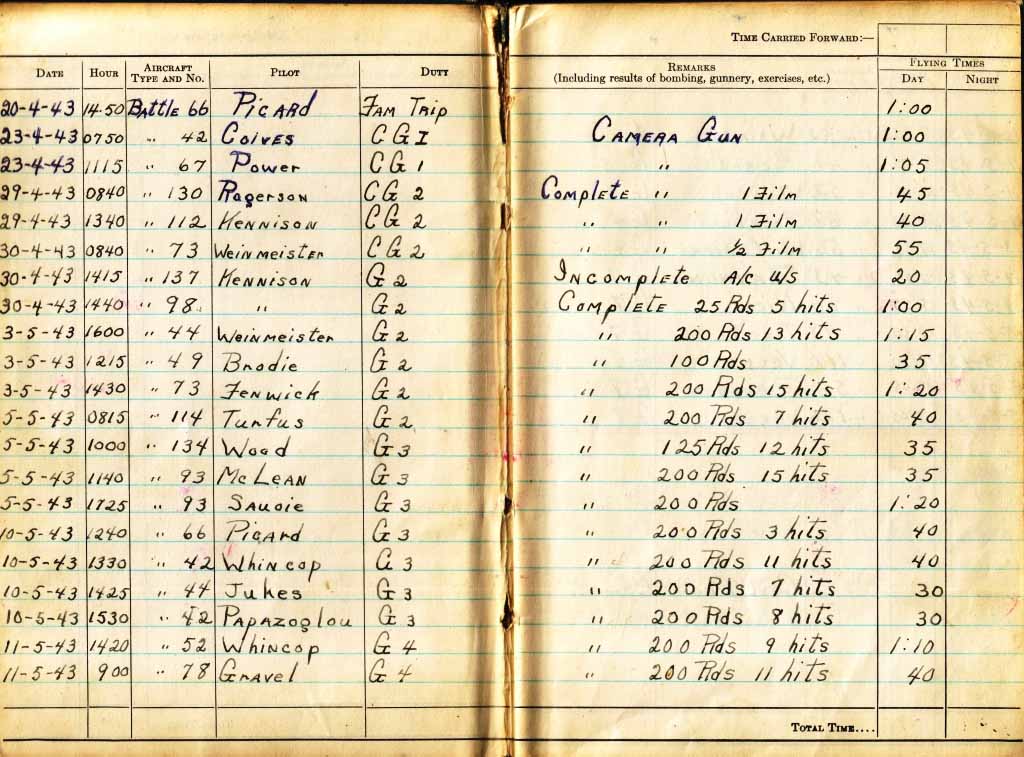 TIME CARRIED FORWARD:—
DATE HOUR AIRCRAFT TYPE AND NO. PILOT DUTY REMARKS (Including results of bombing, gunnery, exercises, etc.) FLYING TIMES DAY NIGHT
20-4-43 14.50 BATTLE 66 PICARD FAM TRIP 1:00
23-4-43 0750 " 42 COIVES CG1 CAMERA GUN 1:00
23-4-43 1115 " 67 POWER CG1 " 1:05
29-4-43 0840 " 130 ROGERSON CG2 COMPLETE " 1 FILM 45
29-4-43 1340 " 112 KENNISON CG2 " " 1 FILM 40
30-4-43 0840 " 73 WEINMEISTER CG2 " " ½ FILM 55
30-4-43 1415 " 137 KENNISON G2 INCOMPLETE A/C U/S 20
30-4-43 1440 " 98 " G2 COMPLETE 25 Rds 5 hits 1:00
3-5-43 1600 " 44 WEINMEISTER G2 " 200 Rds 13 hits 1:15
3-5-43 1215 " 49 Brodie G2 " 100 Rds 35
3-5-43 1430 " 73 FENWICK G2 " 200 Rds 15 hits 1:20
5-5-43 0815 " 114 Turfus G2 " 200 Rds 7 hits 40
5-5-43 1000 " 134 Wood G3 " 125 Rds 12 hits 35
5-5-43 1140 " 93 McLEAN G3 " 200 Rds 15 hits 35
5-5-43 1725 " 93 SAVOIE G3 " 200 Rds 1:20
10-5-43 1240 " 66 PICARD G3 " 200 Rds 3 hits 40
10-5-43 1330 " 42 WHINCOP G3 " 200 Rds 11 hits 40
10-5-43 1425 " 44 Jukes G3 " 200 Rds 7 hits 30
10-5-43 1530 " 42 PAPAZOGLOU G3 " 200 Rds 8 hits 30
11-5-43 1420 " 52 WHINCOP G4 " 200 Rds 9 hits 1:10
11-5-43 900 " 78 GRAVEL G4 " 200 Rds 11 hits 40
TOTAL TIME....